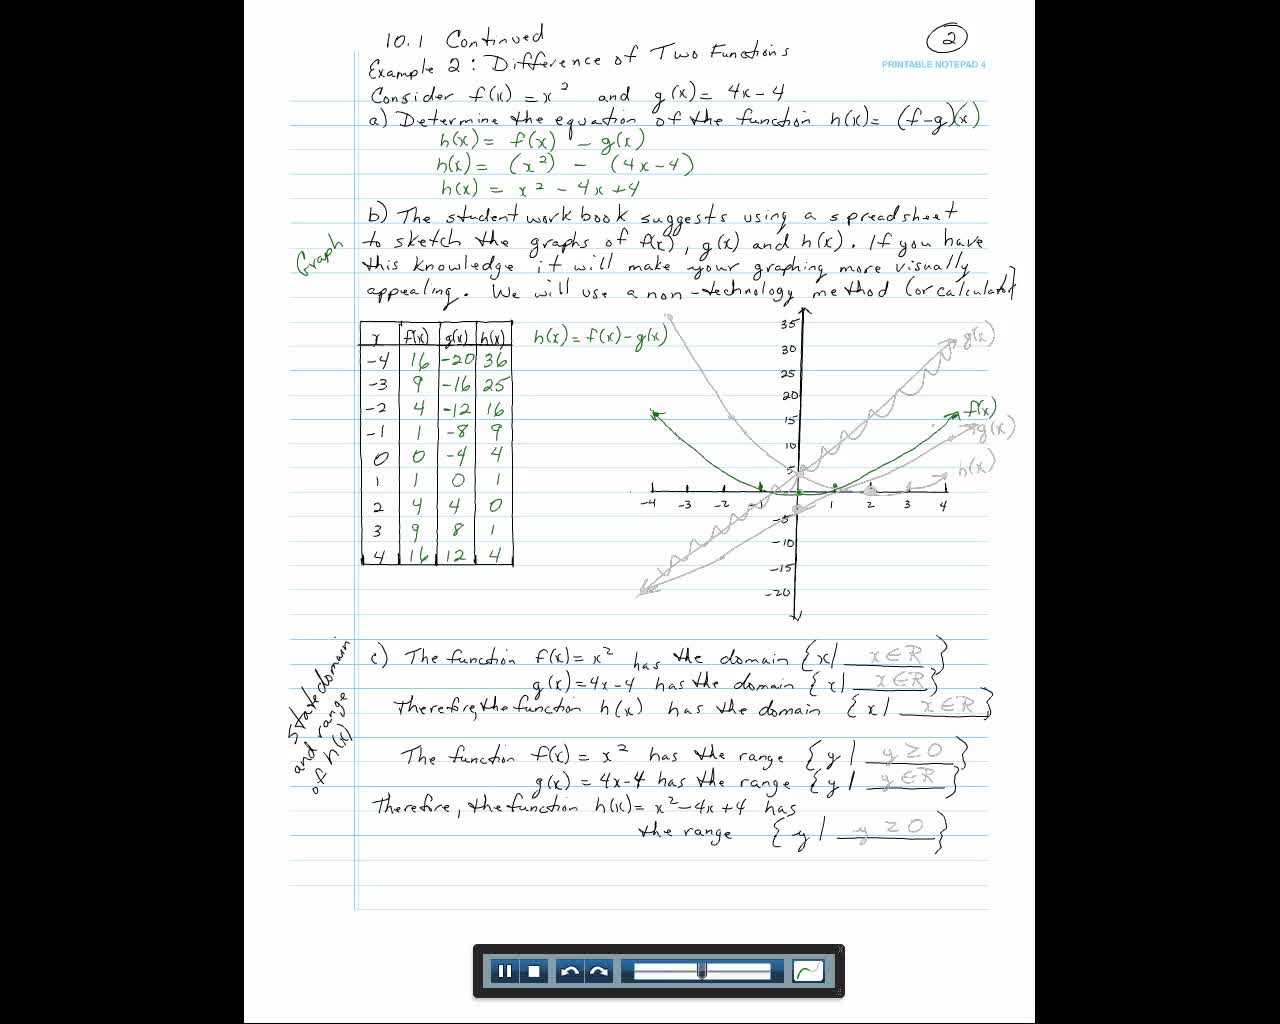 10.1 Continued
2
PRINTABLE NOTEPAD 4
Example 2: Difference of Two Functions
Consider f(x) = x² and g(x) = 4x - 4
a) Determine the equation of the function h(x) = (f-g)(x)
h(x) = f(x) - g(x)
h(x) = (x²) - (4x-4)
h(x) = x² - 4x + 4
b) The student workbook suggests using a spreadsheet
to sketch the graphs of f(x), g(x) and h(x). If you have
Graph
this knowledge it will make your graphing more visually
appealing. We will use a non-technology method (or calculator)
x f(x) g(x) h(x)
-4 16 -20 36
-3 9 -16 25
-2 4 -12 16
-1 1 -8 9
0 0 -4 4
1 1 0 1
2 4 4 0
3 9 8 1
4 16 12 4
h(x) = f(x) - g(x)
35
30
25
20
15
10
5
-5
-10
-15
-20
-4 -3 -2 -1 1 2 3 4
g(x)
f(x)
g(x)
h(x)
State domain
and range
of h(x)
c) The function f(x) = x² has the domain {x| x∈R}
g(x) = 4x-4 has the domain {x| x∈R}
Therefore, the function h(x) has the domain {x| x∈R}
The function f(x) = x² has the range {y| y≥0}
g(x) = 4x-4 has the range {y| y∈R}
Therefore, the function h(x) = x²-4x+4 has
the range {y| y≥0}